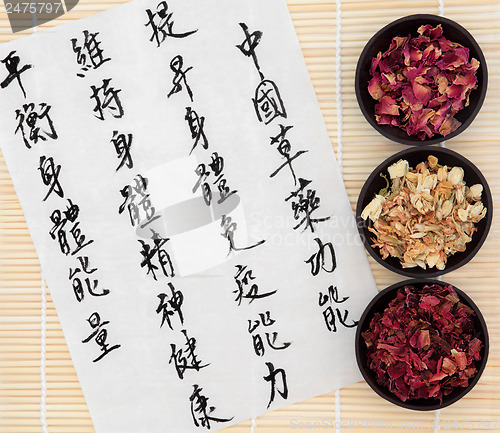 中國草藥功能
提昇身體免疫能力
維持身體精神健康
平衡身體能量
2475797